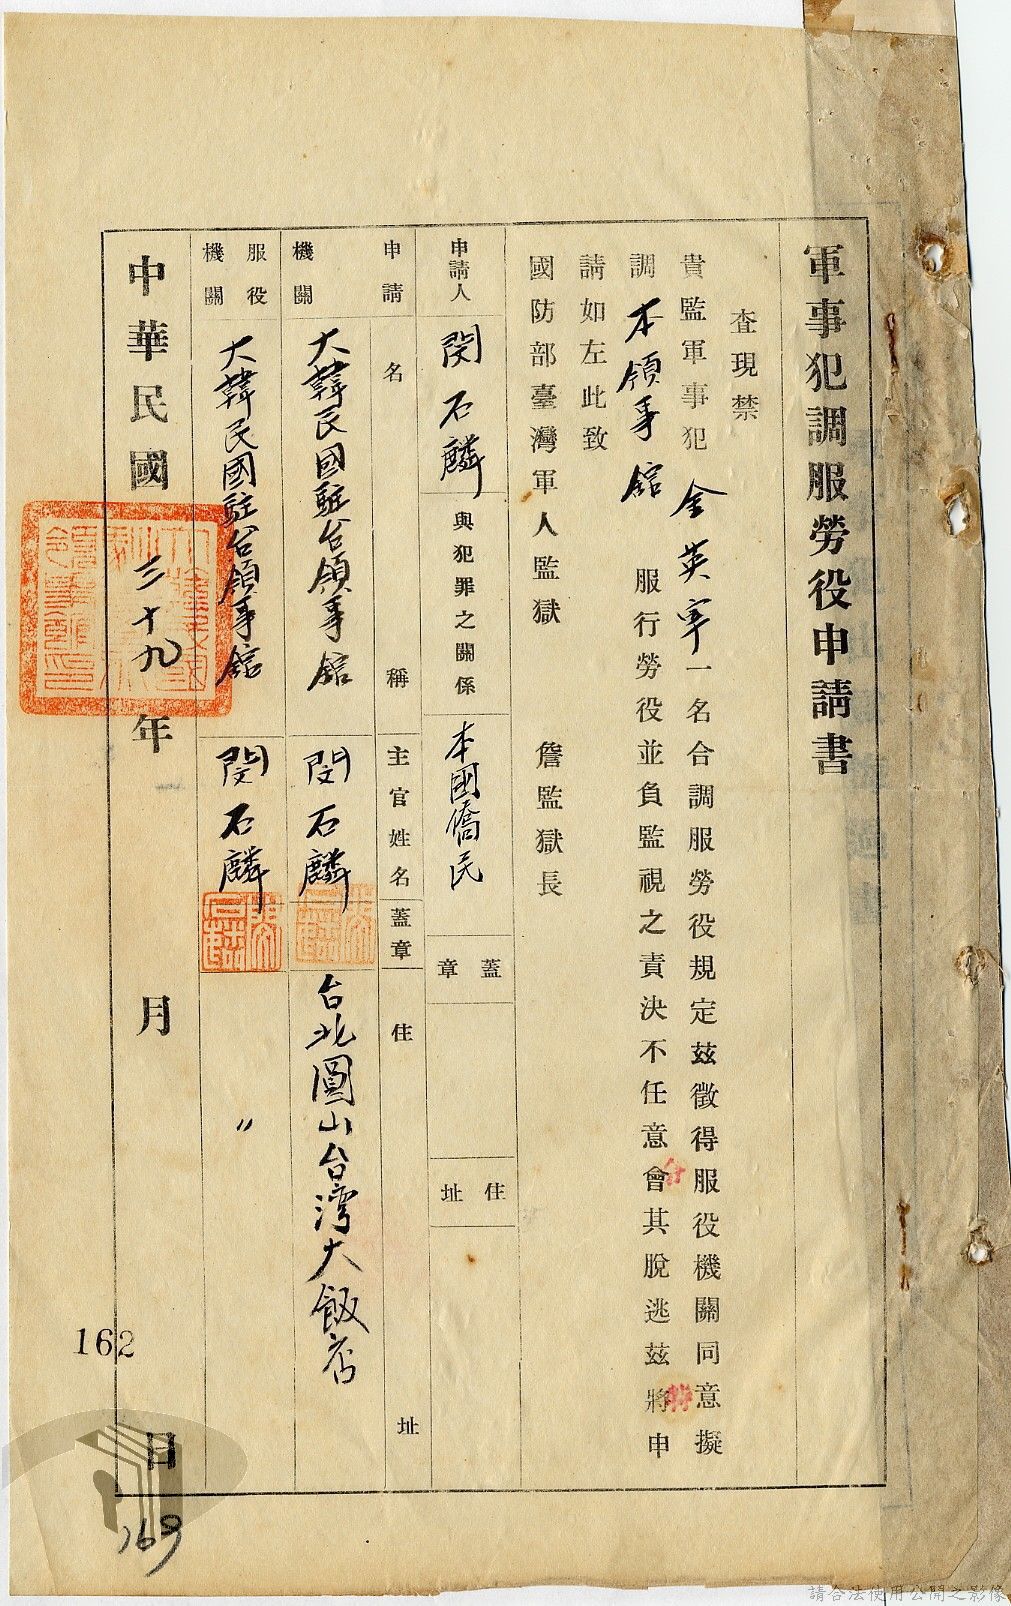 軍事犯調服勞役申請書
查現禁
貴監軍事犯 金英宰 一名合調服勞役規定茲徵得服役機關同意擬
調 本領事舘 服行勞役並負監視之責決不任意會其脫逃茲將申
請如左此致
國防部臺灣軍人監獄 詹監獄長
申請人 閔石麟 與犯罪之關係 本國僑民 蓋章 住址
申請機關 名稱 主官姓名 蓋章 住址
大韓民國駐台領事舘 閔石麟 台北圓山台灣大飯店
服役機關 大韓民國駐台領事舘 閔石麟 〃
中華民國 三十九 年 月 日
162
169
請合法使用公開之影像